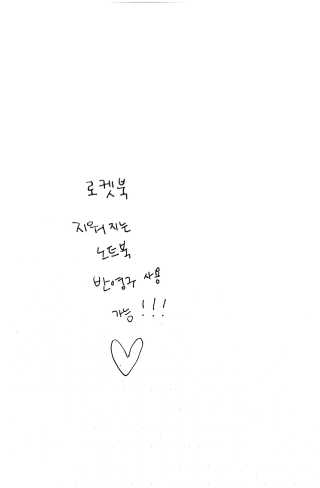 로켓북
지워지는
노트북
반영구 사용
가능!!!